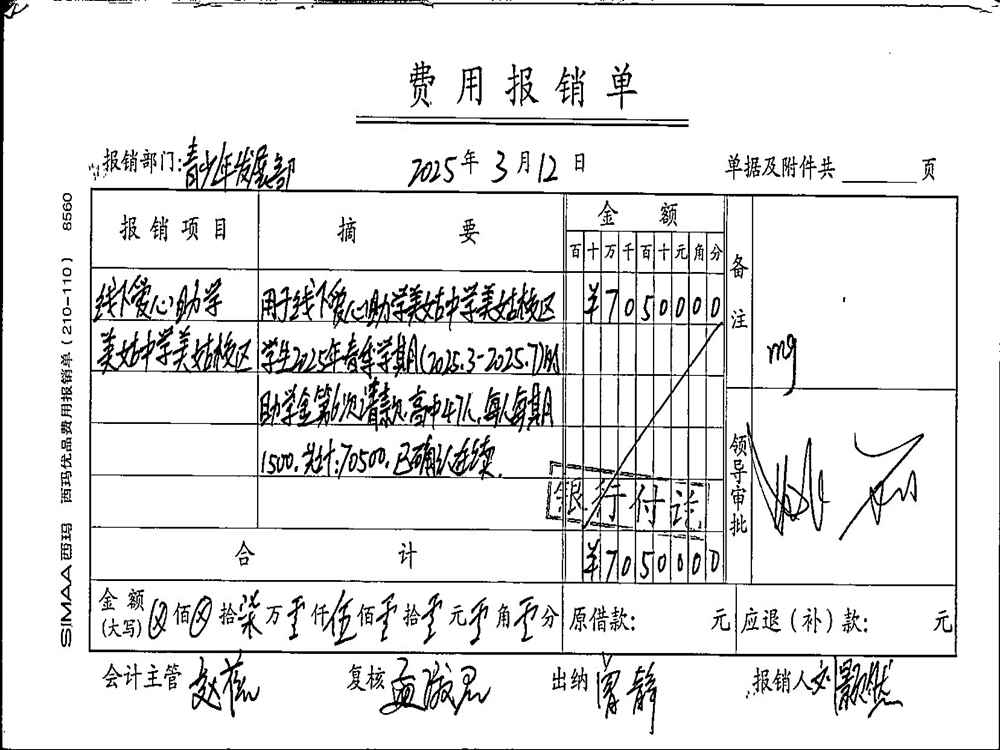 费用报销单
报销部门:青少年发展部 2025年3月12日 单据及附件共 页
报销项目 摘要 金额 备注
百十万千百十元角分
线下爱心助学 用于线下爱心助学美姑中学美姑校区 ¥7050000
美姑中学美姑校区 学生2025年春季学期(2025.3-2025.7)的
助学金第6次请款.高中47人,每人每期
1500.共计:70500.已确认连续.
mg
领导审批
银行付讫
合计 ¥7050000
金额(大写) 佰 拾柒万零仟伍佰零拾零元零角零分 原借款: 元 应退(补)款: 元
会计主管 复核 出纳 曾静 报销人 刘颢然
SIMAA西玛 西玛优品费用报销单(210-110) 8560